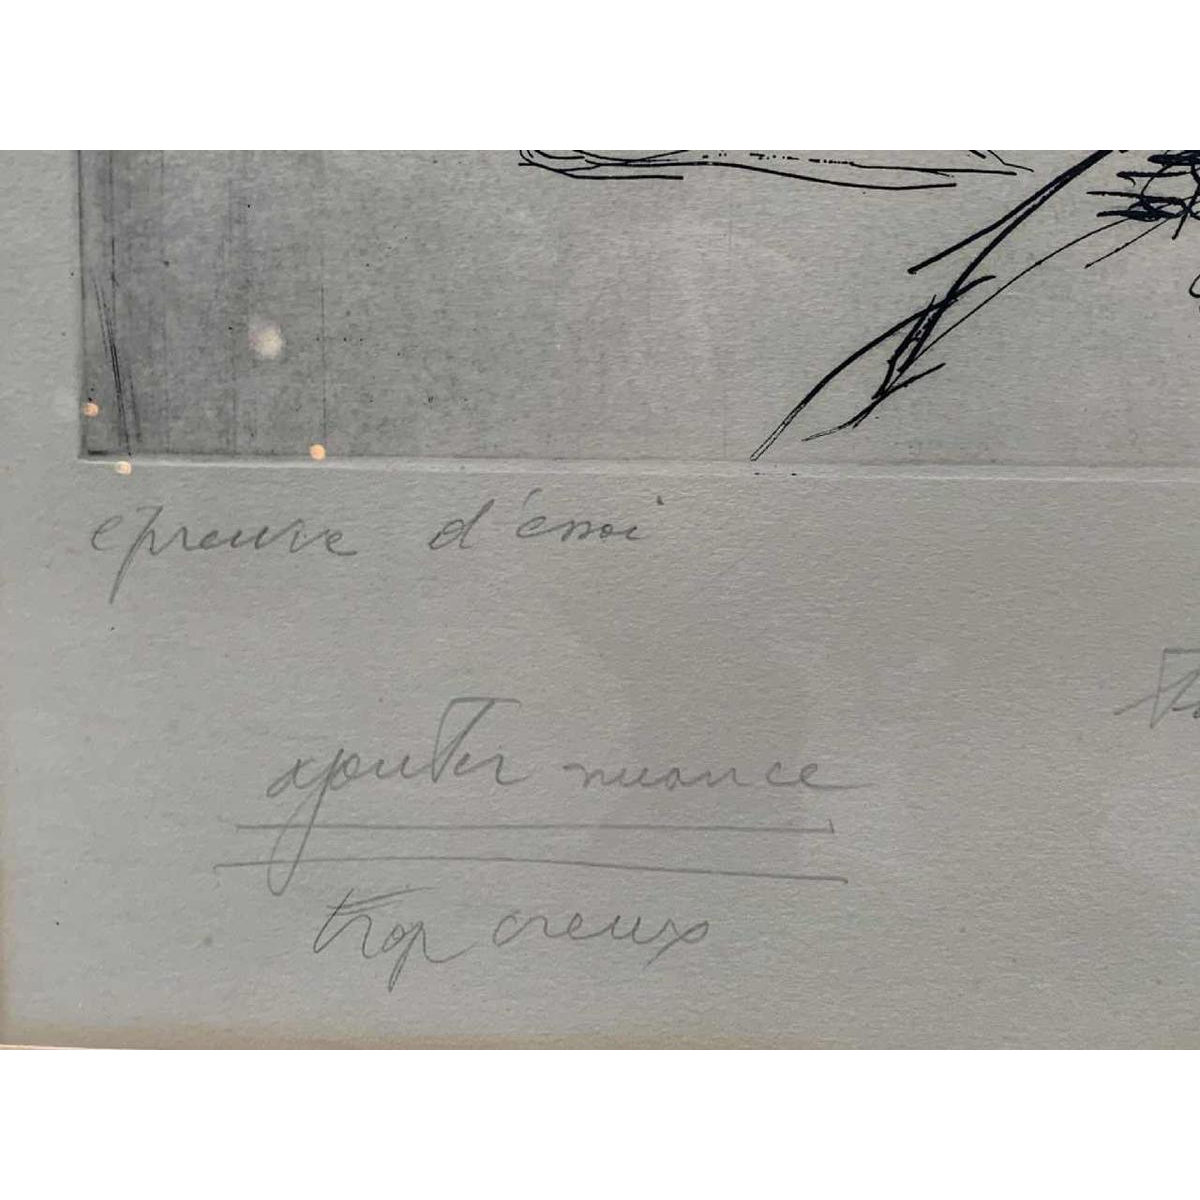 épreuve d'éssai
ajouter nuance
trop creux